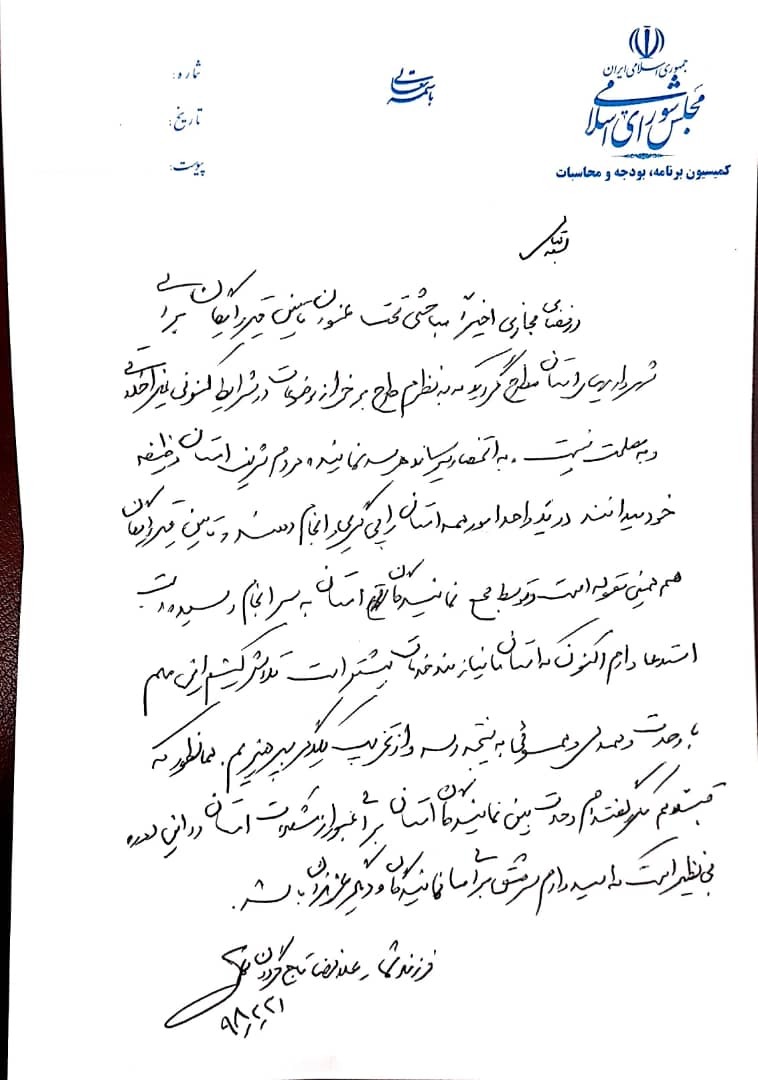 جمهوری اسلامی ایران
مجلس شورای اسلامی
کمیسیون برنامه، بودجه و محاسبات
باسمه تعالی
شماره:
تاریخ:
پیوست:
بسمه تعالی
در فضای مجازی اخیراً مباحثی تحت عنوان تامین قیر رایگان برای
شهرداریهای استان مطرح گردید که به نظرم طرح برخی از موضوعات در شرایط کنونی غیر اخلاقی
و به مصلحت نیست. به استحضار میرساند هر سه نماینده مردم شریف استان وظیفه
خود میدانند در ید واحد امور همه استان را پی گیری و انجام دهند و تامین قیر رایگان
هم همین مقوله است و توسط مجمع نمایندگان استان به سرانجام رسیده است
استدعا دارم اکنون که استان ما نیازمند خدمات بیشتر است تلاش کنیم این مهم
با وحدت و همدلی و همسوئی به نتیجه رسد و از تخریب یکدیگر بپرهیزیم. همانطور که
قبلا هم گفته‌ام وحدت بین نمایندگان استان برای عبور از مشکلات استان در این دوره
بی نظیر است که امیدوارم سرمشق برای ما نمایندگان و دیگر عزیزان باشد.
فرزند شما - غلامرضا تاجگردون
۹۸/۲/۲۱